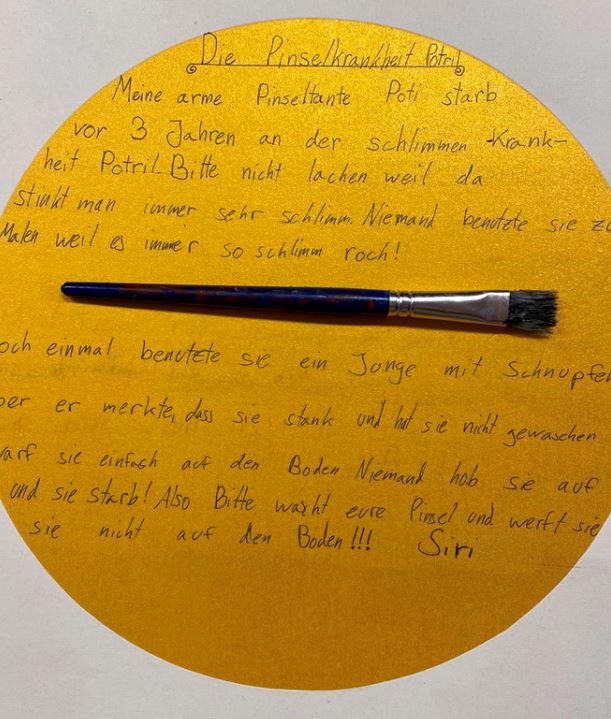 Die Pinselkrankheit Potril
Meine arme Pinseltante Poti starb
vor 3 Jahren an der schlimmen Krank-
heit Potril. Bitte nicht lachen weil da
stinkt man immer sehr schlimm. Niemand benutzte sie zu
Malen weil es immer so schlimm roch!
och einmal benutzte sie ein Junge mit Schnupfen
ber er merkte, dass sie stank und hat sie nicht gewaschen
warf sie einfach auf den Boden Niemand hob sie auf
und sie starb! Also Bitte wascht eure Pinsel und werft sie
sie nicht auf den Boden!!! Siri